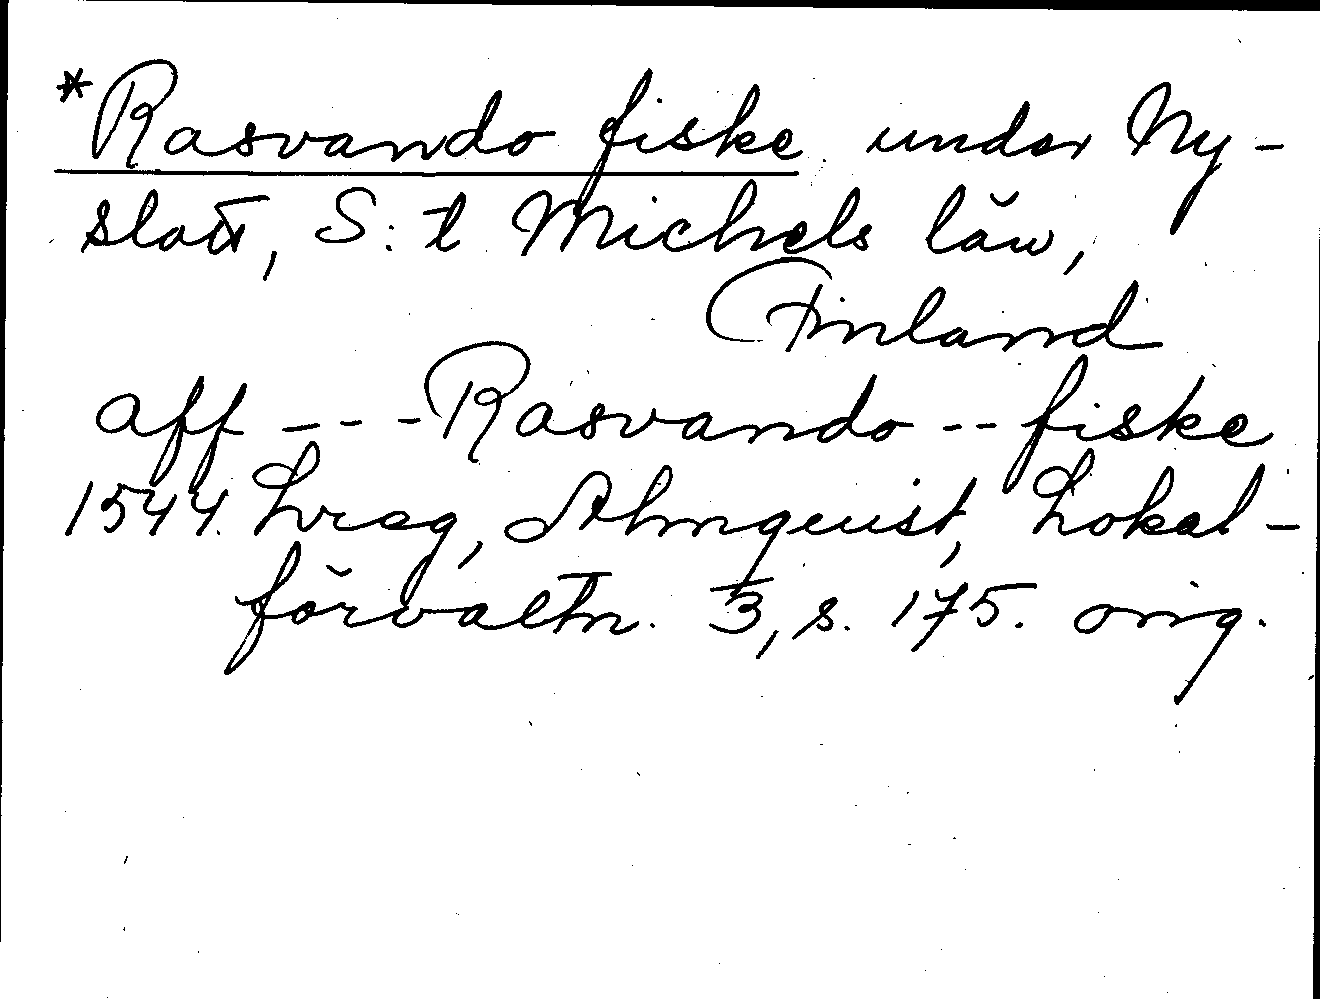 *Rasvando fiske under Ny-
slott, S:t Michels län,
Finland
aff - - - Rasvando -- fiske
1544. Lvreg, Almquist, Lokal-
förvaltn. 3, s. 175. orig.